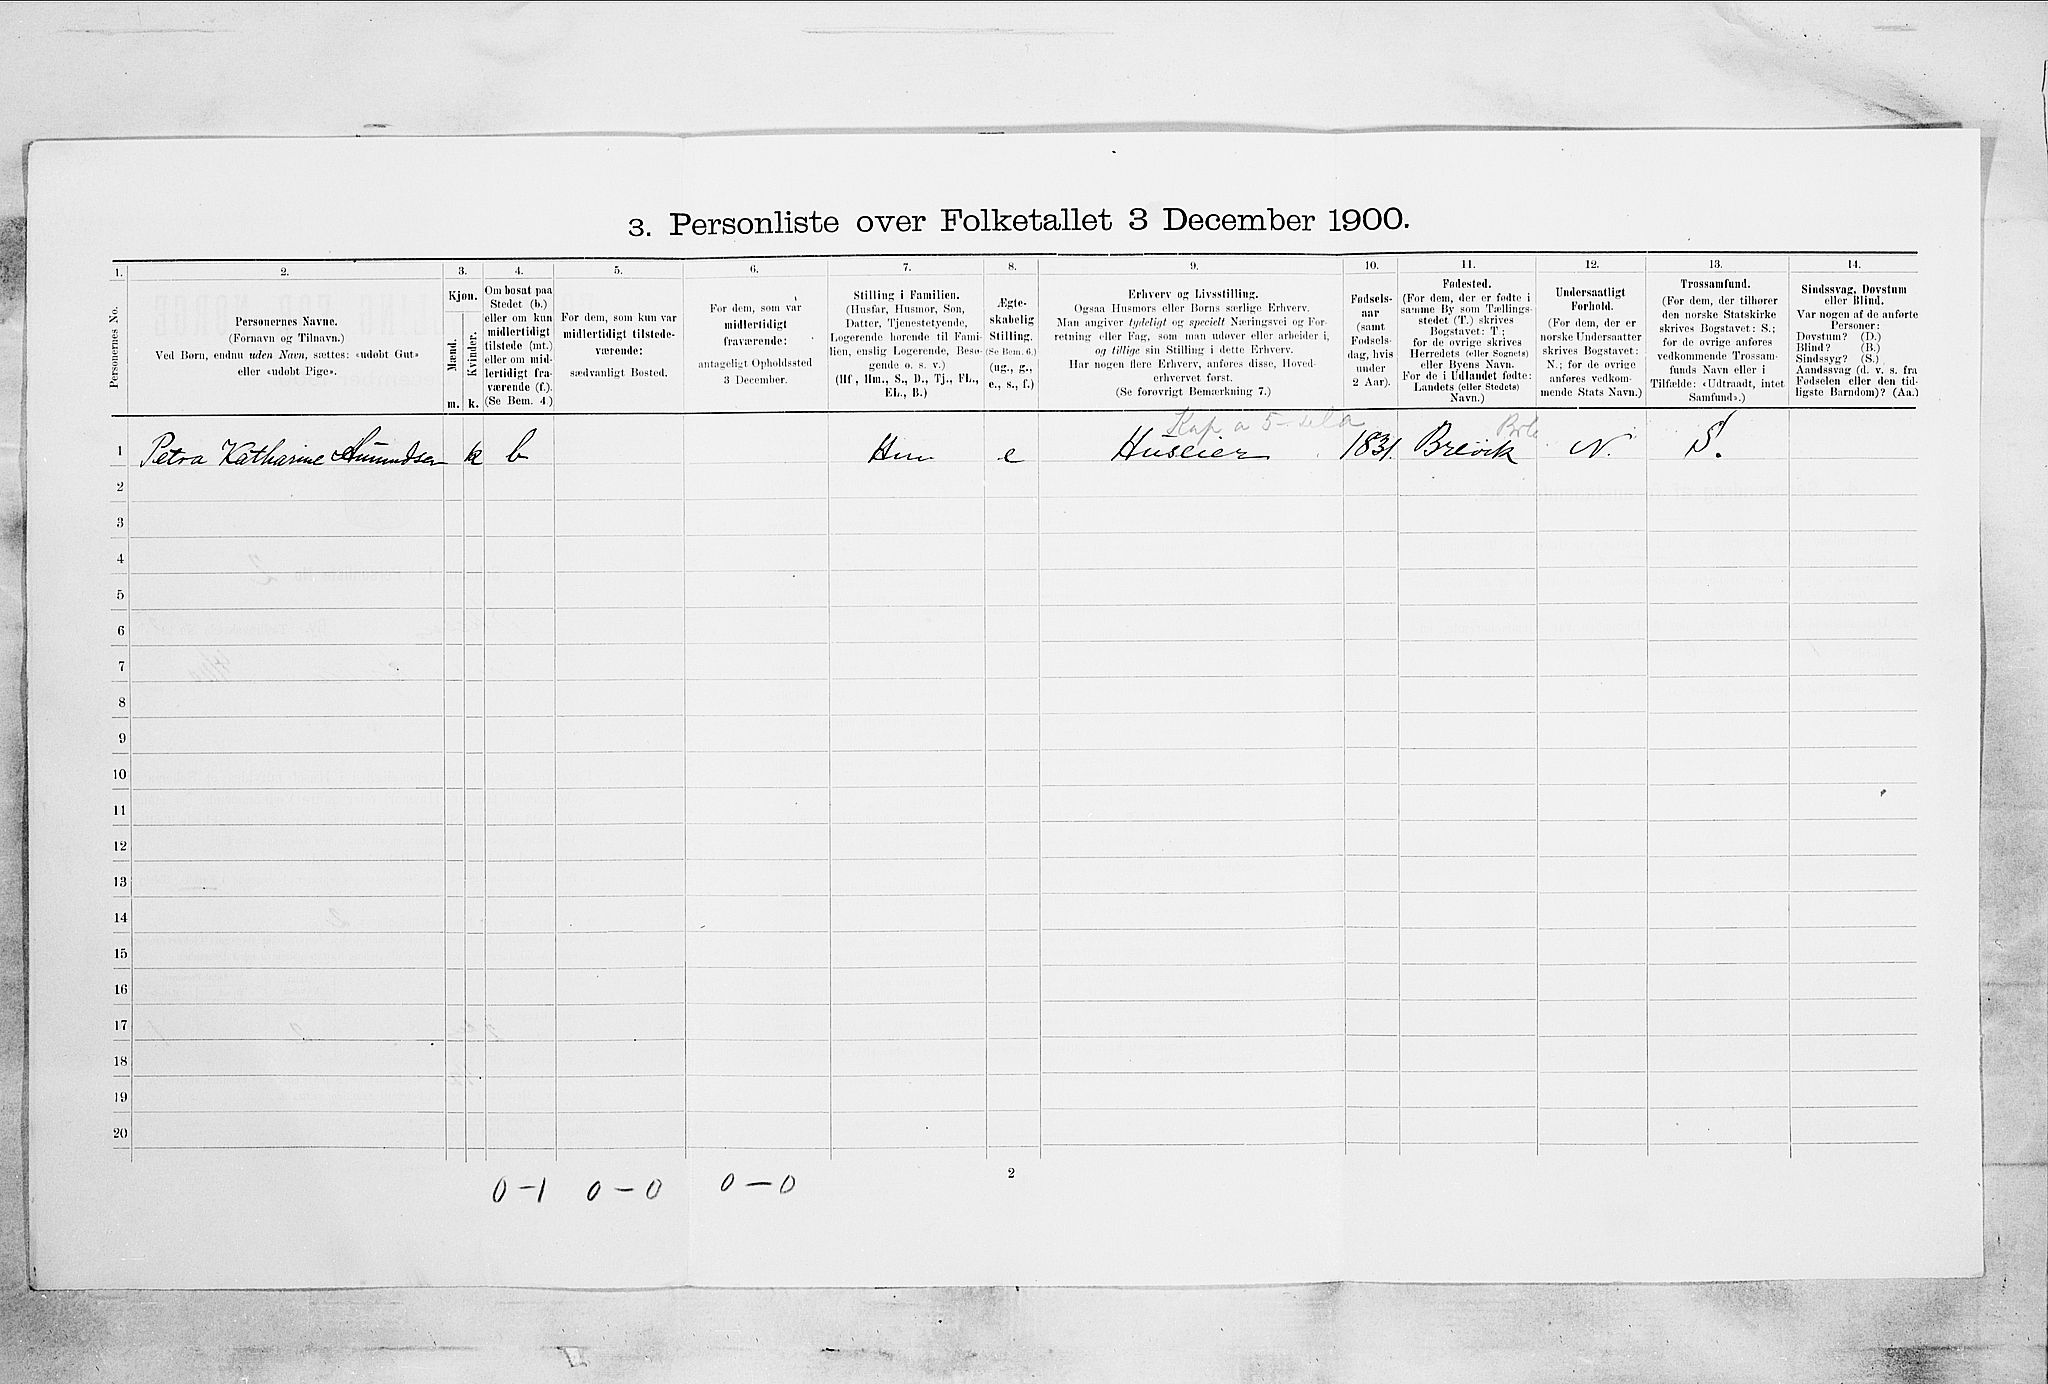 3. Personliste over Folketallet 3 December 1900.
1.
2.
3.
4.
5.
6.
7.
8.
9.
10.
11.
12.
13.
14.
Personernes No.
Personernes Navne.
(Fornavn og Tilnavn.)
Ved Børn, endnu uden Navn, sættes: «udøbt Gut»
eller «udøbt Pige».
Kjøn.
Mænd.
Kvinder.
m.
k.
Om bosat paa
Stedet (b.)
eller om kun
midlertidigt
tilstede (mt.)
eller om mid-
lertidigt fra-
værende (f.).
(Se Bem. 4.)
For dem, som kun var
midlertidigt tilstede-
værende:
sædvanligt Bosted.
For dem, som var
midlertidigt
fraværende:
antageligt Opholdssted
3 December.
Stilling i Familien.
(Husfar, Husmor, Søn,
Datter, Tjenestetyende,
Logerende hørende til Fami-
lien, enslig Logerende, Besø-
gende o. s. v.)
(Hf., Hm., S., D., Tj., FL.,
EL., B.)
Ægte-
skabelig
Stilling.
(Se Bem. 6.)
(ug., g.,
e., s., f.)
Erhverv og Livsstilling.
Ogsaa Husmors eller Børns særlige Erhverv.
Man angiver tydeligt og specielt Næringsvei og For-
retning eller Fag, som man udøver eller arbeider i,
og tillige sin Stilling i dette Erhverv.
Har nogen flere Erhverv, anføres disse, Hoved-
erhvervet først.
(Se forøvrigt Bemærkning 7.)
Fødsels-
aar
(samt
Fødsels-
dag, hvis
under
2 Aar).
Fødested.
(For dem, der er fødte i
samme By som Tællings-
stedet (T.) skrives
Bogstavet: T;
for de øvrige skrives
Herredets (eller Sognets)
eller Byens Navn.
For de i Udlandet fødte:
Landets (eller Stedets)
Navn.)
Undersaatligt
Forhold.
(For dem, der er
norske Undersaatter
skrives Bogstavet:
N.; for de øvrige
anføres vedkom-
mende Stats Navn.)
Trossamfund.
(For dem, der tilhører
den norske Statskirke
skrives Bogstavet: S.;
for de øvrige anføres
vedkommende Trossam-
funds Navn eller i
Tilfælde: «Udtraadt, intet
Samfund».)
Sindssvag, Døvstum
eller Blind.
Var nogen af de anførte
Personer:
Døvstum? (D.)
Blind? (B.)
Sindssyg? (S.)
Aandssvag (d. v. s. fra
Fødselen eller den tid-
ligste Barndom)? (Aa.)
1 Petra Katharine k b Hm e Huseier 1831. Brevik N. S.
2
3
4
5
6
7
8
9
10
11
12
13
14
15
16
17
18
19
20
0-1 0-0 0-0
2